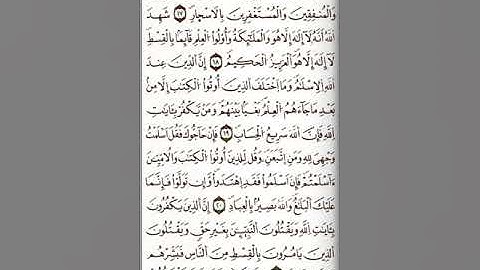 وَالْمُنفِقِينَ وَالْمُسْتَغْفِرِينَ بِالَاسْحِارِ ١٧ شَهِدَ
اَللَّهُ أَنَّهُ لَآ إِلَٰهَ إِلَّا هُوَ وَالْمَلَٰٓئِكَةُ وَأُوْلُواْ الْعِلْمِ قَآئِماَۢ بِالْقِسْطِ
لَآ إِلَٰهَ إِلَّا هُوَ اَلْعَزِيزُ الْحَكِيمُ ١٨ إِنَّ الدِّينَ عِندَ
اَللَّهِ الِاسْلَٰمُ وَمَا اَخْتَلَفَ الذِينَ أُوتُواْ الْكِتَٰبَ إِلَّا مِنۢ
بَعْدِ مَا جَآءَهُمُ الْعِلْمُ بَغْياَۢ بَيْنَهُمْ وَمَنْ يَّكْفُرْ بِـَٔايَٰتِ
اِللَّهِ فَإِنَّ اَللَّهَ سَرِيعُ الْحِسَابِ ١٩ فَإِنْ حَآجُّوكَ فَقُلَ اَسْلَمْتُ
وَجْهِيَ لِلهِ وَمَنِ اِتَّبَعَنِۦ وَقُل لِّلذِينَ أُوتُواْ الْكِتَٰبَ وَالُامِّيِّـۧنَ
ءَآسْلَمْتُمْ فَإِنَ اَسْلَمُواْ فَقَدِ اِهْتَدَواْ وَّإِن تَوَلَّوْاْ فَإِنَّمَا
عَلَيْكَ اَلْبَلَٰغُ وَاللَّهُ بَصِيرُۢ بِالْعِبَادِ ٢٠ إِنَّ الذِينَ يَكْفُرُونَ
بِـَٔايَٰتِ اِللَّهِ وَيَقْتُلُونَ اَلنَّبِيٓـِٕينَ بِغَيْرِ حَقٍّ وَيَقْتُلُونَ
اَلذِينَ يَامُرُونَ بِالْقِسْطِ مِنَ اَلنَّاسِ فَبَشِّرْهُم